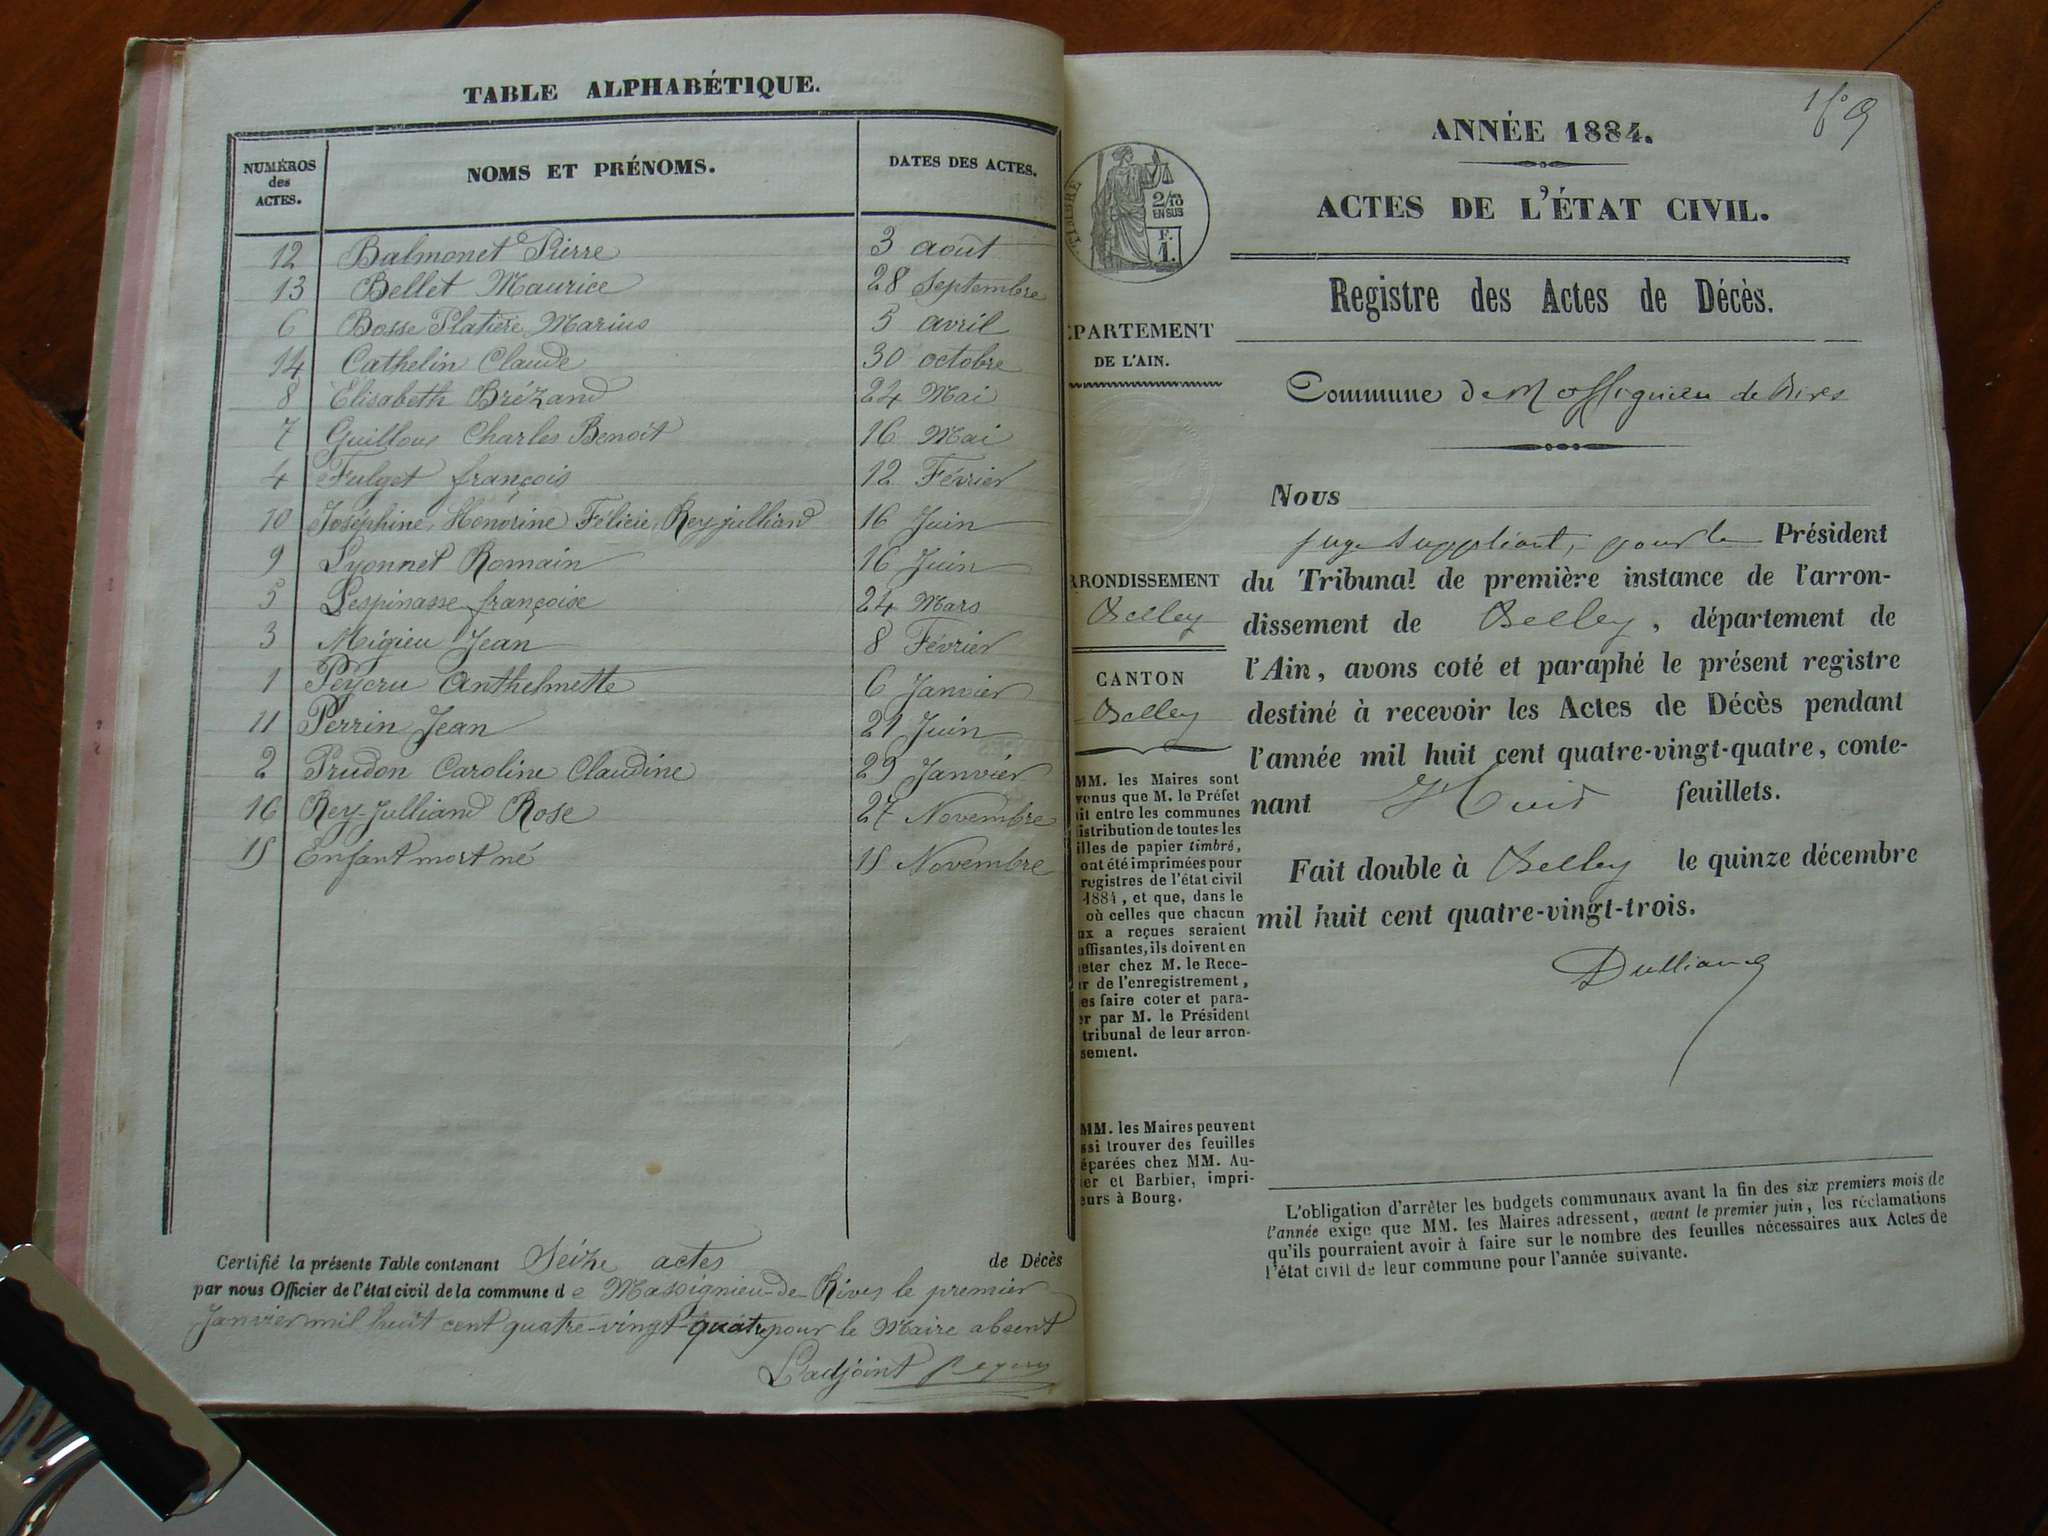 TABLE ALPHABÉTIQUE.
NUMÉROS des ACTES.
NOMS ET PRÉNOMS.
DATES DES ACTES.
12 Balmonet Pierre 3 aout
13 Bellet Maurice 28 Septembre
6 Bosse Platière Marius 5 avril
14 Cathelin Claude 30 octobre
8 Elisabeth Brézand 24 Mai
7 Guilloux Charles Benoit 16 Mai
4 Fulget françois 12 Février
10 Joséphine, Honorine Félicie, Rey julliand 16 Juin
9 Lyonnet Romain 16 Juin
5 Lespinasse françoise 24 Mars
3 Migieu Jean 8 Février
1 Peycru Anthelmette 6 Janvier
11 Perrin Jean 21 Juin
2 Prudon Caroline Claudine 29 Janvier
16 Rey-Julliand Rose 27 Novembre
15 Enfant mort né 15 Novembre
Certifié la présente Table contenant Seize actes de Décès
par nous Officier de l'état civil de la commune de Massignieu-de-Rives le premier
Janvier mil huit cent quatre-vingt-quatre pour le Maire absent
L'adjoint
1 fo
ANNÉE 1884.
ACTES DE L'ÉTAT CIVIL.
Registre des Actes de Décès.
TIMBRE
2/10
EN SUS
F.
1.
ÉPARTEMENT
DE L'AIN.
Commune de Massignieu de Rives
Nous
juge suppléant, pour le Président
du Tribunal de première instance de l'arron-
dissement de Belley, département de
l'Ain, avons coté et paraphé le présent registre
destiné à recevoir les Actes de Décès pendant
l'année mil huit cent quatre-vingt-quatre, conte-
nant Huit feuillets.
Fait double à Belley le quinze décembre
mil huit cent quatre-vingt-trois.
Dulliand
RRONDISSEMENT
Belley
CANTON
Belley
MM. les Maires sont
venus que M. le Préfet
it entre les communes
istribution de toutes les
illes de papier timbré,
ont été imprimées pour
registres de l'état civil
1884, et que, dans le
où celles que chacun
ux a reçues seraient
uffisantes, ils doivent en
eter chez M. le Rece-
r de l'enregistrement,
es faire coter et para-
er par M. le Président
tribunal de leur arron-
sement.
MM. les Maires peuvent
ssi trouver des feuilles
éparées chez MM. Au-
ier et Barbier, impri-
eurs à Bourg.
L'obligation d'arrêter les budgets communaux avant la fin des six premiers mois de
l'année exige que MM. les Maires adressent, avant le premier juin, les réclamations
qu'ils pourraient avoir à faire sur le nombre des feuilles nécessaires aux Actes de
l'état civil de leur commune pour l'année suivante.